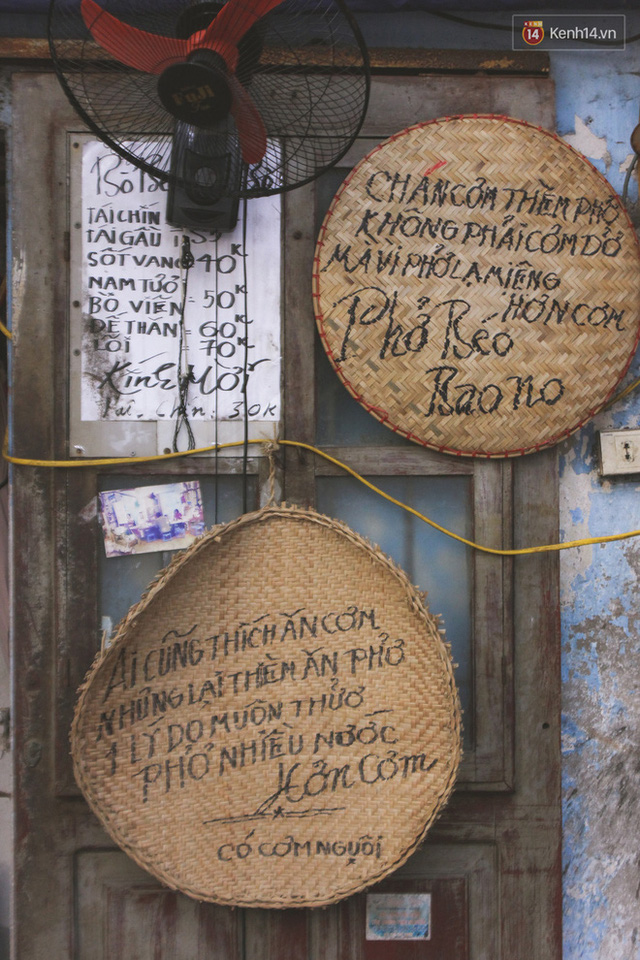 14 Kenh14.vn
FUJI
TÁI CHÍN
TÁI GẦU
SỐT VANG 40K
NẠM TƯỚ
BÒ VIÊN = 50K
ĐẾ THAN = 60K
LÕI = 70K
Kính Mời
30K
CHÁN CƠM THÈM PHỞ
KHÔNG PHẢI CƠM DỞ
MÀ VÌ PHỞ LẠ MIỆNG
HƠN CƠM
Phở Béo
Bao no
AI CŨNG THÍCH ĂN CƠM
NHƯNG LẠI THÈM ĂN PHỞ
1 LÝ DO MUÔN THUỞ
PHỞ NHIỀU NƯỚC
Hơn Cơm
CÓ CƠM NGUỘI